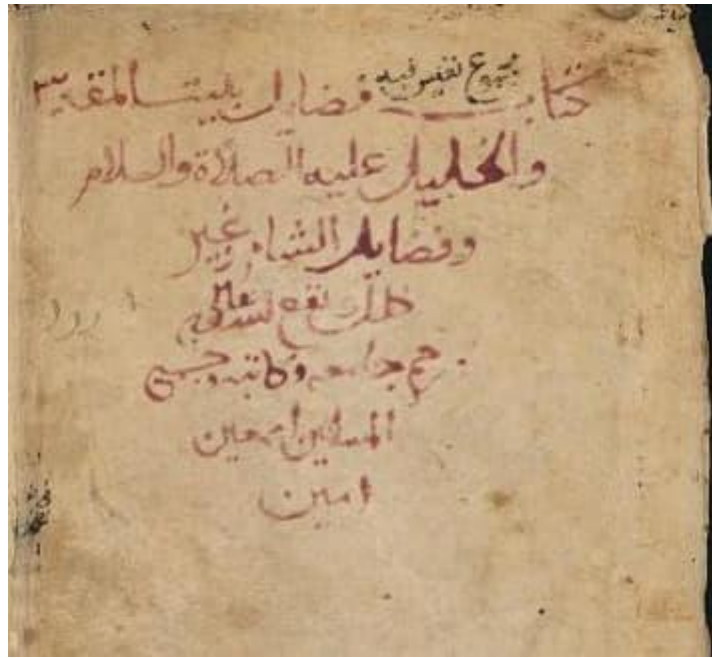 كتاب مجموع نفيس فيه فضايل بيت المقدس
والخليل عليه الصلاة والسلام
وفضايل الشام وغير
ذلك نفع الله تعالى به
جامعه وكاتبه وجميع
المسلمين اجمعين
امين